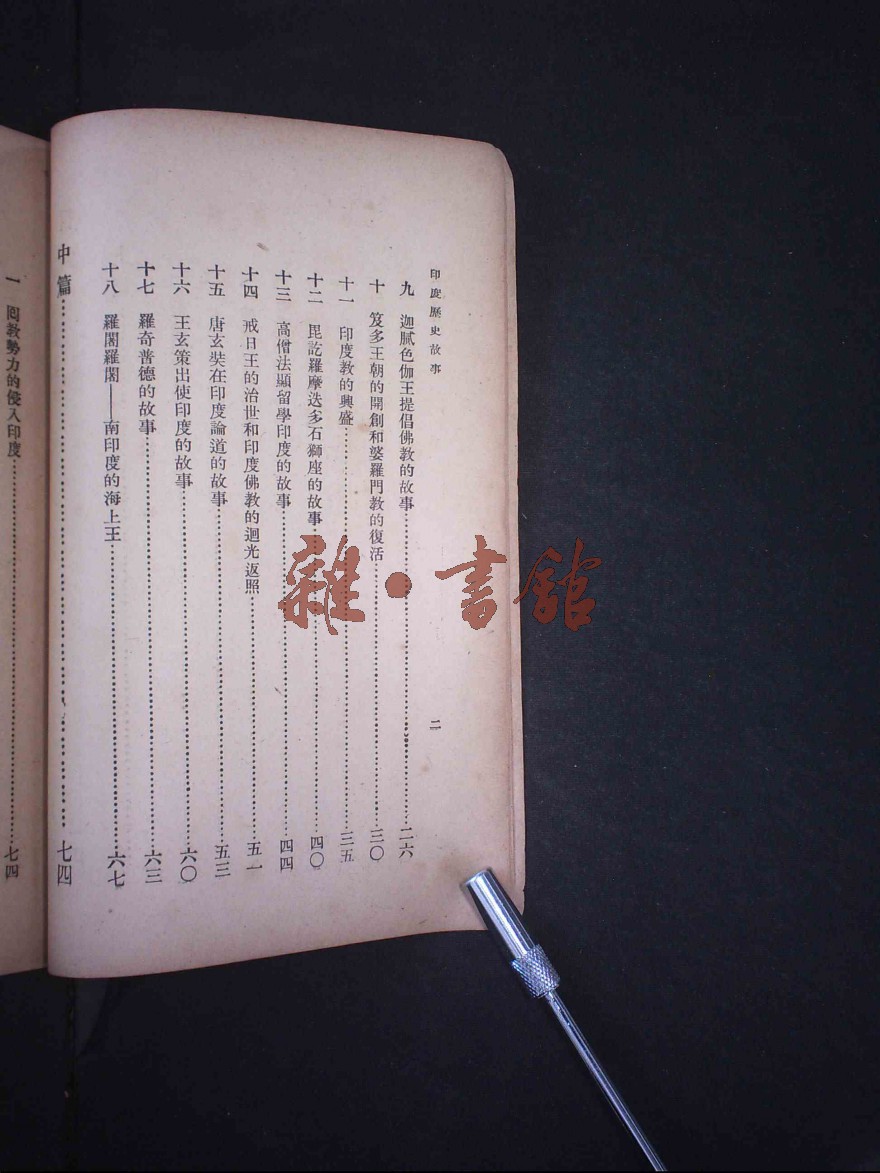 印度歷史故事
二
九 迦膩色伽王提倡佛教的故事……二六
十 笈多王朝的開創和婆羅門教的復活……三〇
十一 印度教的興盛……三五
十二 毘訖羅摩迭多石獅座的故事……四〇
十三 高僧法顯留學印度的故事……四四
十四 戒日王的治世和印度佛教的迴光返照……五一
十五 唐玄奘在印度論道的故事……五三
十六 王玄策出使印度的故事……六〇
十七 羅奇普德的故事……六三
十八 羅闍羅闍——南印度的海上王……六七
中篇……七四
一 囘教勢力的侵入印度……七四
雜·書館